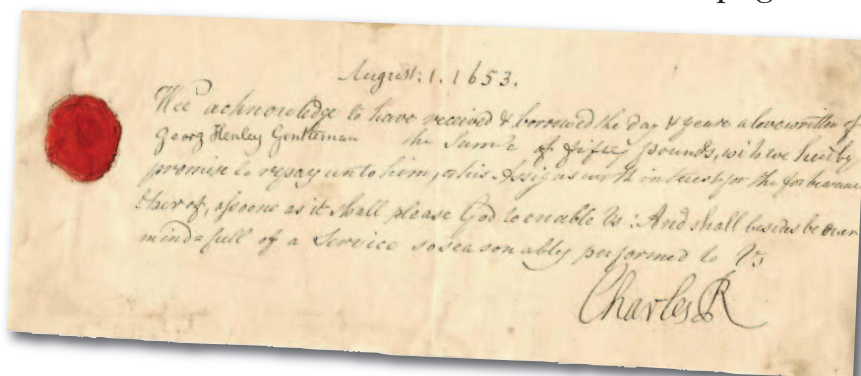 pag
August: 1. 1653.
Wee acknowledge to have received & borrowed the day & yeare abovewritten of
Georg Henley Gentleman the Summe of fifty pounds, wch we hereby
promise to repay unto him, or his Assignes with interest for the forbearance
thereof, assoone as it shall please God to enable Us: And shall besides be ever
mind=full of a Service so seasonably performed to Us
Charles R